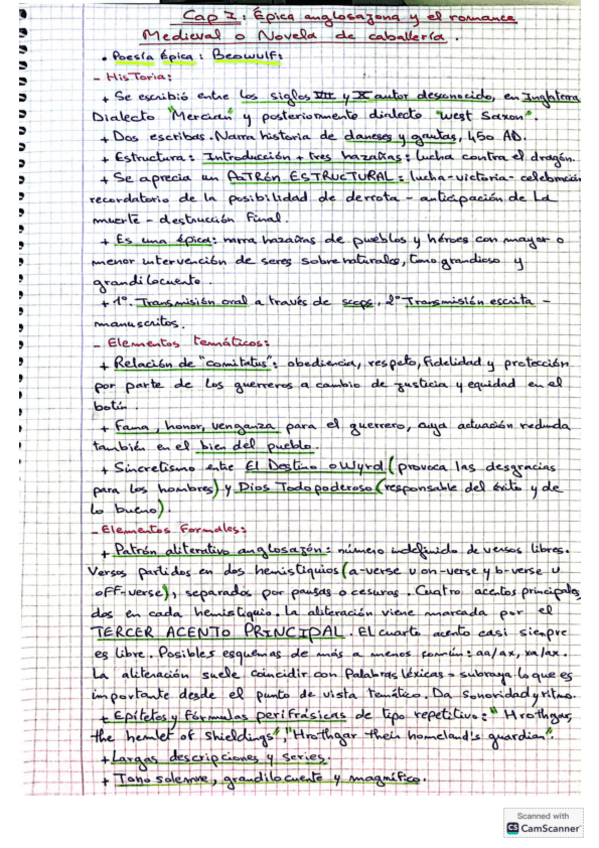 Cap I: Épica anglosajona y el romance
Medieval o Novela de caballería.
• Poesía Épica: Beowulf:
- HisToria:
+ Se escribió entre los siglos VIII y X autor desconocido, en Inglaterra
Dialecto "Mercian" y posteriormente dialecto "West Saxon".
+ Dos escribas. Narra historia de daneses y gautas, 450 AD.
+ Estructura: Introducción + tres hazañas: lucha contra el dragón.
+ Se aprecia un PATRÓN ESTRUCTURAL: lucha-victoria-celebración
recordatorio de la posibilidad de derrota - anticipación de la
muerte - destrucción final.
+ Es una épica: narra hazañas de pueblos y héroes con mayor o
menor intervención de seres sobrenaturales, tono grandioso y
grandilocuente.
+ 1º. Transmisión oral a través de scops, 2º Transmisión escrita -
manuscritos.
- Elementos temáticos:
+ Relación de "comitatus": obediencia, respeto, fidelidad y protección
por parte de los guerreros a cambio de justicia y equidad en el
botín.
+ Fama, honor, venganza para el guerrero, cuya actuación redunda
también en el bien del pueblo.
+ Sincretismo entre El Destino o Wyrd (provoca las desgracias
para los hombres) y Dios Todopoderoso (responsable del éxito y de
lo bueno).
- Elementos Formales:
+ Patrón aliterativo anglosajón: número indefinido de versos libres.
Versos partidos en dos hemistiquios (a-verse u on-verse y b-verse u
off-verse), separados por pausas o cesuras. Cuatro acentos principales,
dos en cada hemistiquio. La aliteración viene marcada por el
TERCER ACENTO PRINCIPAL. El cuarto acento casi siempre
es libre. Posibles esquemas de más a menos común: aa/ax, xa/ax.
La aliteración suele coincidir con Palabras léxicas = subraya lo que es
importante desde el punto de vista temático. Da sonoridad y ritmo.
+ Epítetos y fórmulas perifrásicas de tipo repetitivo: "Hrothgar,
the hemlet of Shieldings", "Hrothgar their homeland's guardian".
+ Largas descripciones y series.
+ Tono solemne, grandilocuente y magnífico.
Scanned with
CS CamScanner